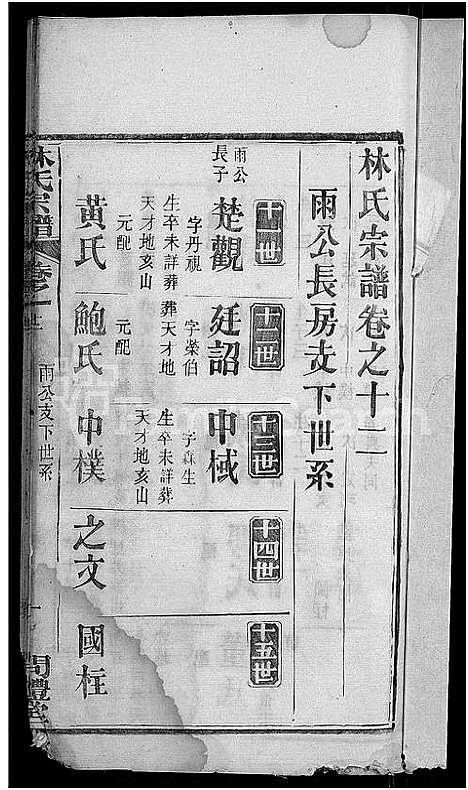 林氏宗譜卷之十二
雨公長房支下世系
十一世
十二世
十三世
十四世
十五世
雨公長子
楚觀
字丹視
生卒未詳葬天才地亥山
元配
黃氏
廷詔
字榮伯
葬天才地
元配
鮑氏
中棫
字森生
生卒未詳葬天才地亥山
中樸
之文
國柱
林氏宗譜
卷之
雨公支下世系
一